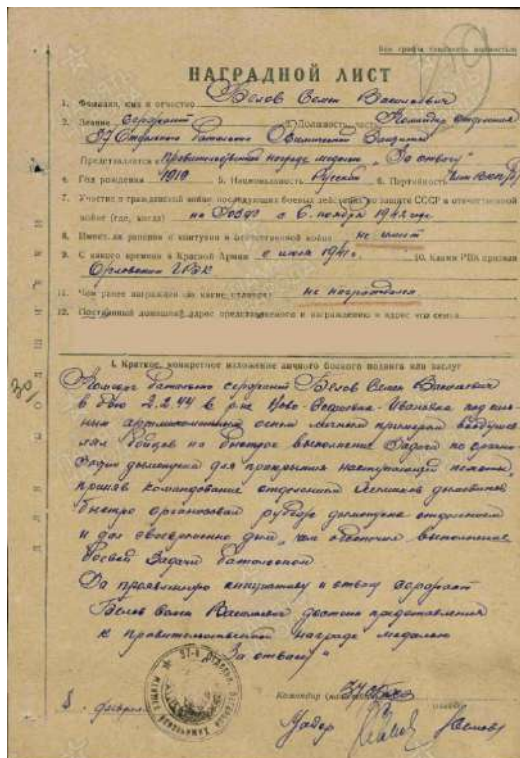 Все графы заполнять полностью
НАГРАДНОЙ ЛИСТ
1. Фамилия, имя и отчество Белов Семен Васильевич
2. Звание сержант 3. Должность, часть Командир отделения
37 Отдельного батальона Химической Защиты
Представляется к Правительственной награде медаль „За отвагу"
4. Год рождения 1919 5. Национальность Русский 6. Партийность член ВКП(б)
7. Участие в гражданской войне, последующих боевых действиях по защите СССР и отечественной
войне (где, когда) с 6 ноября 1942 года
8. Имеет ли ранения и контузии в отечественной войне не имеет
9. С какого времени в Красной Армии с июля 1941г. 10. Каким РВК призван
Орловским ГРВК
11. Чем ранее награжден (за какие отличия) не награждался
12. Постоянный домашний адрес представляемого к награждению и адрес его семьи
I. Краткое, конкретное изложение личного боевого подвига или заслуг
батальона сержант Белов Семен Васильевич
в бою 2.2.44 в р-не Ивановка под силь-
ным огнем личным примером воодушев-
лял бойцов на быстрое выполнение задачи по
дымопуска для прикрытия наступающей пехоты,
приняв командование отделением
быстро организовал рубеж дымопуска отделением
и дал своевременно дым, чем обеспечил выполнение
боевой задачи батальоном
За проявленную инициативу и отвагу сержант
Белов Семен Васильевич достоин представления
к правительственной награде медалью
„За отвагу"
Командир
Майор
феврал
30